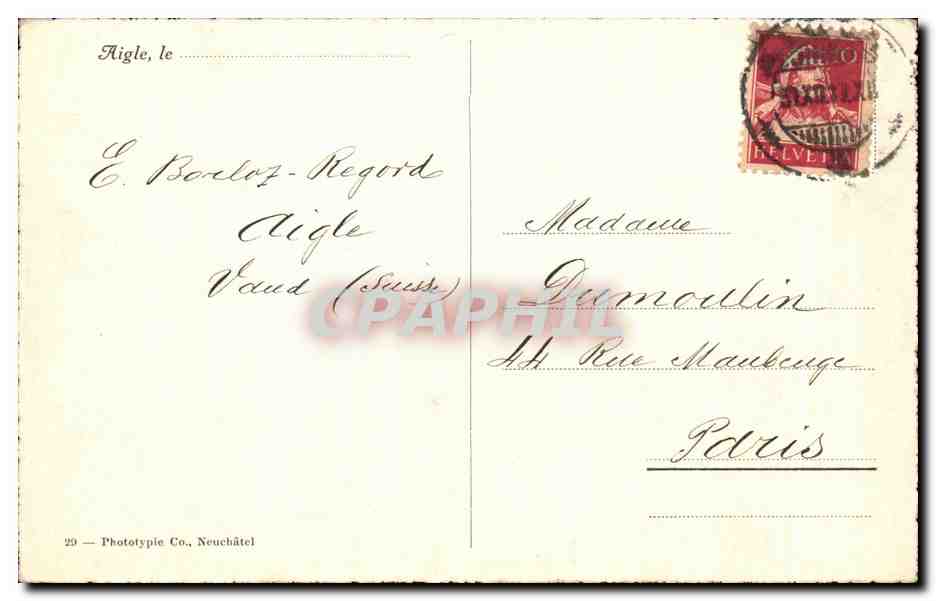 Aigle, le
E. Borloz-Regord
Aigle
Vaud (Suisse)
HELVETIA
Madame
Dumoulin
44 Rue Maubeuge
Paris
CPAPHIL
29 — Phototypie Co., Neuchâtel